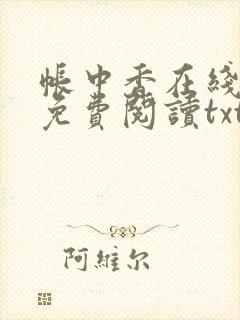 帳中香在綫
免費閱讀txt
阿維尔